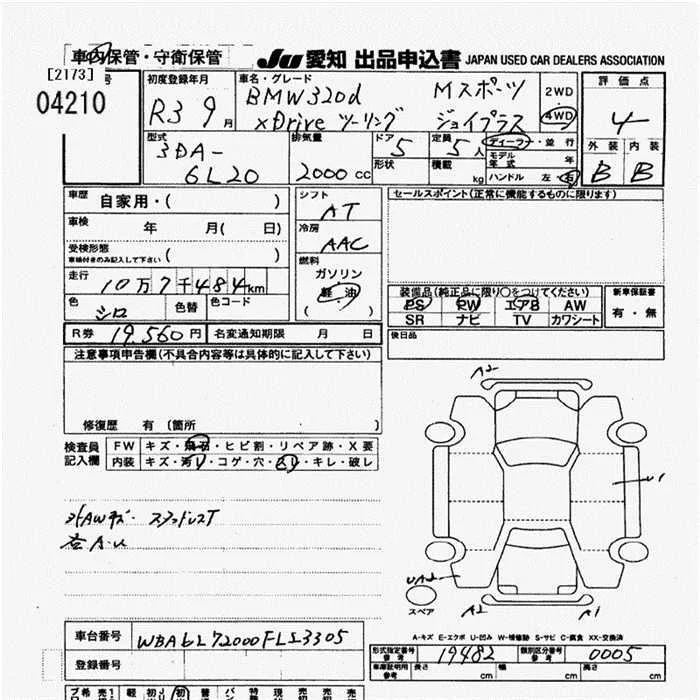 車内保管・守衛保管 Ju 愛知 出品申込書 JAPAN USED CAR DEALERS ASSOCIATION
[2173] 号
04210
初度登録年月 R3 9月
車名・グレード BMW320d Mスポーツ
xDrive ツーリング ジョイプラス
2WD 4WD
評価点 4
型式 3DA-6L20
排気量 2000cc
ドア 5 形状
定員 5人 積載 kg
ディーラー・並行
モデル年式 年
ハンドル 左・右
外装 B 内装 B
車歴 自家用・( )
シフト AT
セールスポイント(正常に機能するものに限ります)
車検 年 月( 日)
冷房 AAC
受検形態 車検付きのみ記入して下さい ( )
燃料 ガソリン 軽油 ( )
走行 10万7千484km
装備品(純正品に限り○をつけてください) 新車保証書
色 シロ 色替 色コード
PS PW エアB AW 有・無
SR ナビ TV カワシート
R券 19,560円 名変通知期限 月 日
後日品
注意事項申告欄(不具合内容等は具体的に記入して下さい)
A2
修復歴 有 (箇所 )
検査員記入欄 FW キズ・飛石・ヒビ割・リペア跡・X要
内装 キズ・汚レ・コゲ・穴・スレ・キレ・破レ
U1
外AWキズ・スタッドレスT
UA2
スペア A2 A1
A-キズ E-エクボ U-凹み W-補修跡 S-サビ C-腐食 XX-交換済
車台番号 WBA6L72000FLS3305
形式指定番号 参考 19482 類別区分番号 参考 0005
登録番号
車庫証明用 参考 長さ cm 幅 cm 高さ cm